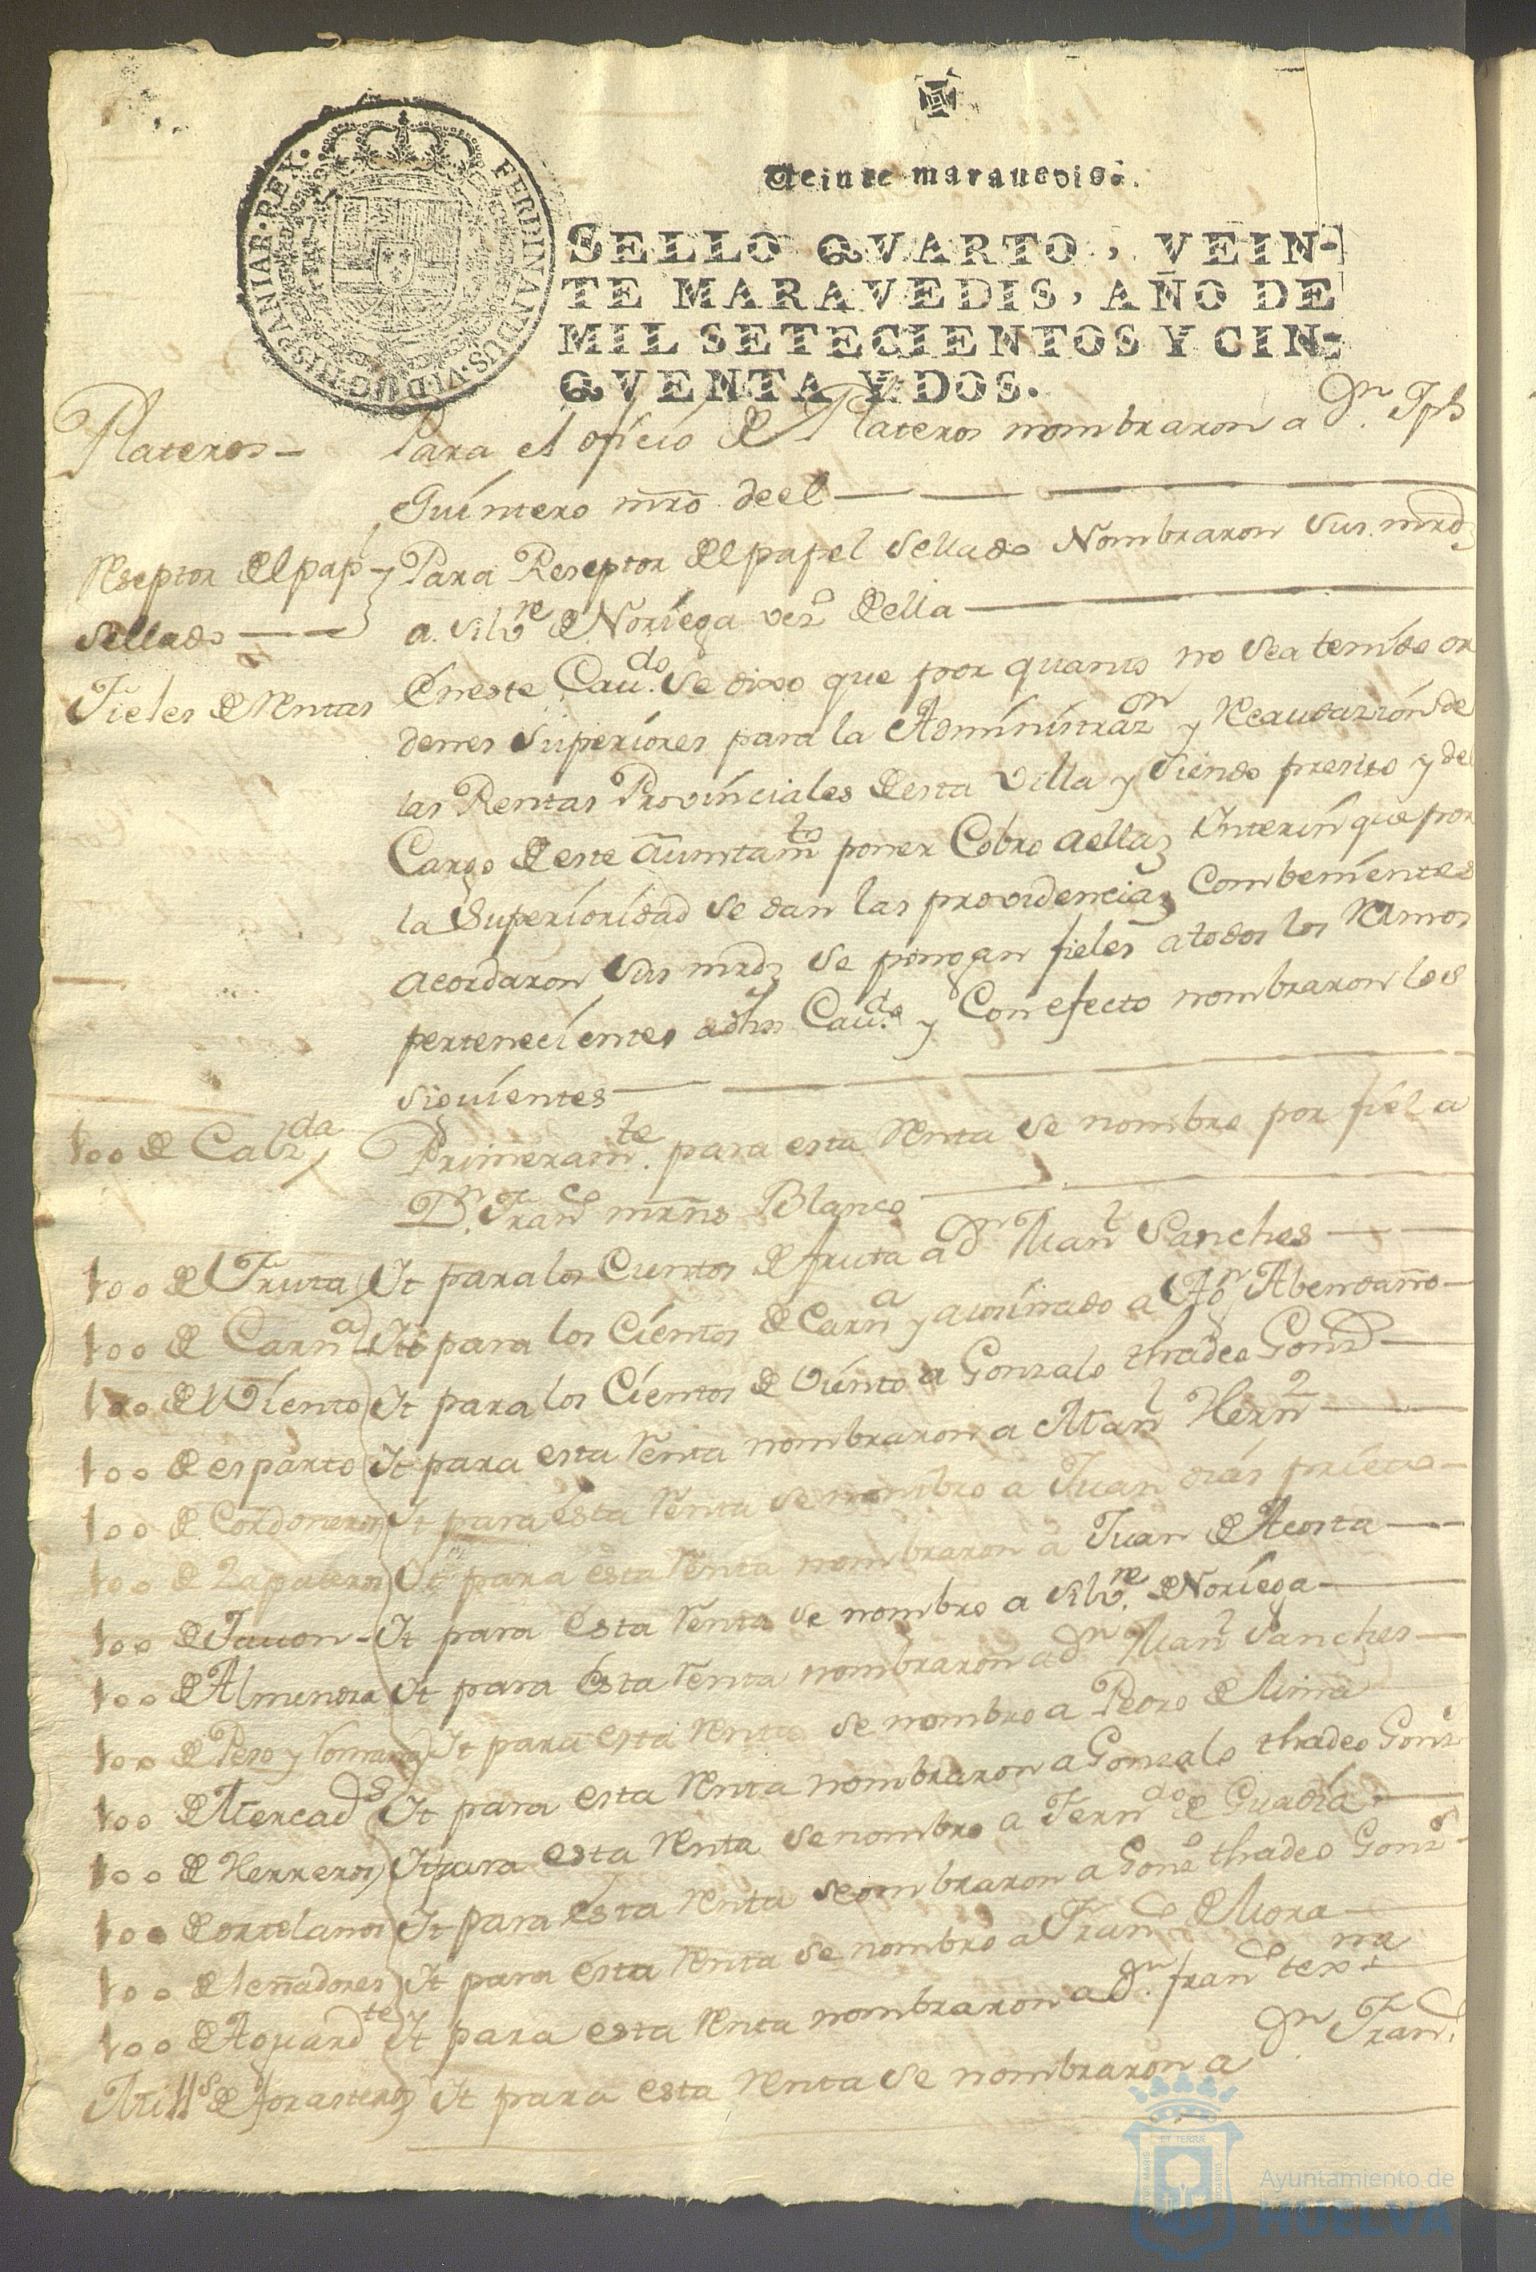 HISPANIAR·REX· FERDINANDUS·VI·D·G·
Veinte marauedis.
SELLO QVARTO, VEIN-
TE MARAVEDIS, AÑO DE
MIL SETECIENTOS Y CIN-
QVENTA Y DOS.
Plateros — Para el oficio de Plateros nombraron a Dn. Jph
Quintero mro. deel
Reseptor del pap Para Reseptor del papel sellado Nombraron sus mrds
sellado — a. Silvre de Noriega vezo della
Fieles de Rentas Eneste Caudo. se dixo que por quanto no sea tenido or
denes superiores para la Administrazn y Recaudazion de
las Rentas Provinciales desta Villa y siendo presiso y del
Cargo deeste Aiuntamto poner Cobro aellas Interin que por
la Superioridad se dan las providencias Combenientes
acordaron sus mrds se pongan fieles atodos los Ramos
pertenecientes adho Caudo. y Con efecto nombraron los
siguientes
100 de Calzda Primeramte. para esta Renta se nombro por fiel a
Dn. Franco mrns Blanco
100 de Fruta It para los Cientos de fruta a dn Manl Sanches
100 de Carna It para los Cientos de Carna y a Adn Abendaño
100 del Viento It para los Cientos de Viento a Gonzalo thadeo Gonz
100 de esparto It para esta Renta nombraron a Manl Hernz
100 de Cordoneros It para esta Renta se nombro a Juan dias prieto
100 de Zapateros It para esta Renta nombraron a Juan de Acosta
100 de Javon - It para esta Renta se nombro a Silvre. de Noriega
100 de Almendra It para esta Renta nombraron a dn Manl Sanches
100 de Peso y Romana It para esta Renta se nombro a Pedro de
100 de Mercads It para esta Renta nombraron a Gonzalo thadeo Gonz
100 de Herreros It para esta Renta se nombro a Ferndo de Guadia
100 de ortelanos It para esta Renta se ombraron a Gono thadeo Gonz
100 de leñadores It para esta Renta se nombro a Franco de Mora
100 de Aguardte It para esta Renta nombraron a dn. franco
Mills de forasteros It para esta Renta se nombraron a Dn Franco
ET TERRÆ
Ayuntamiento de
HUELVA